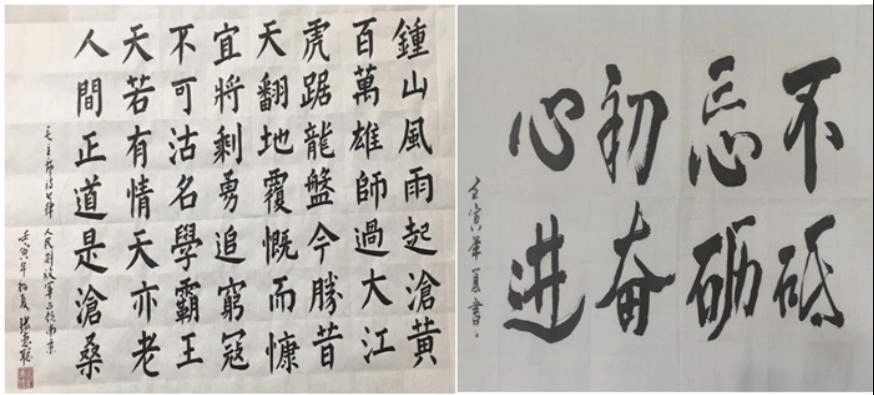 鍾山風雨起滄黃
百萬雄師過大江
虎踞龍盤今勝昔
天翻地覆慨而慷
宜將剩勇追窮寇
不可沽名學霸王
天若有情天亦老
人間正道是滄桑
毛主席诗七律 人民解放军占领南京
壬寅年初夏
不忘初心
砥砺奋进
壬寅 書